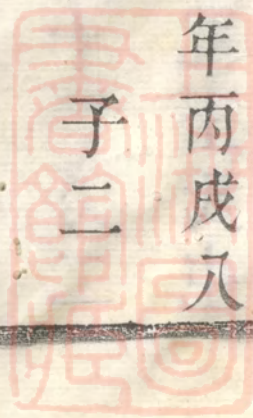 年丙戌八
子二